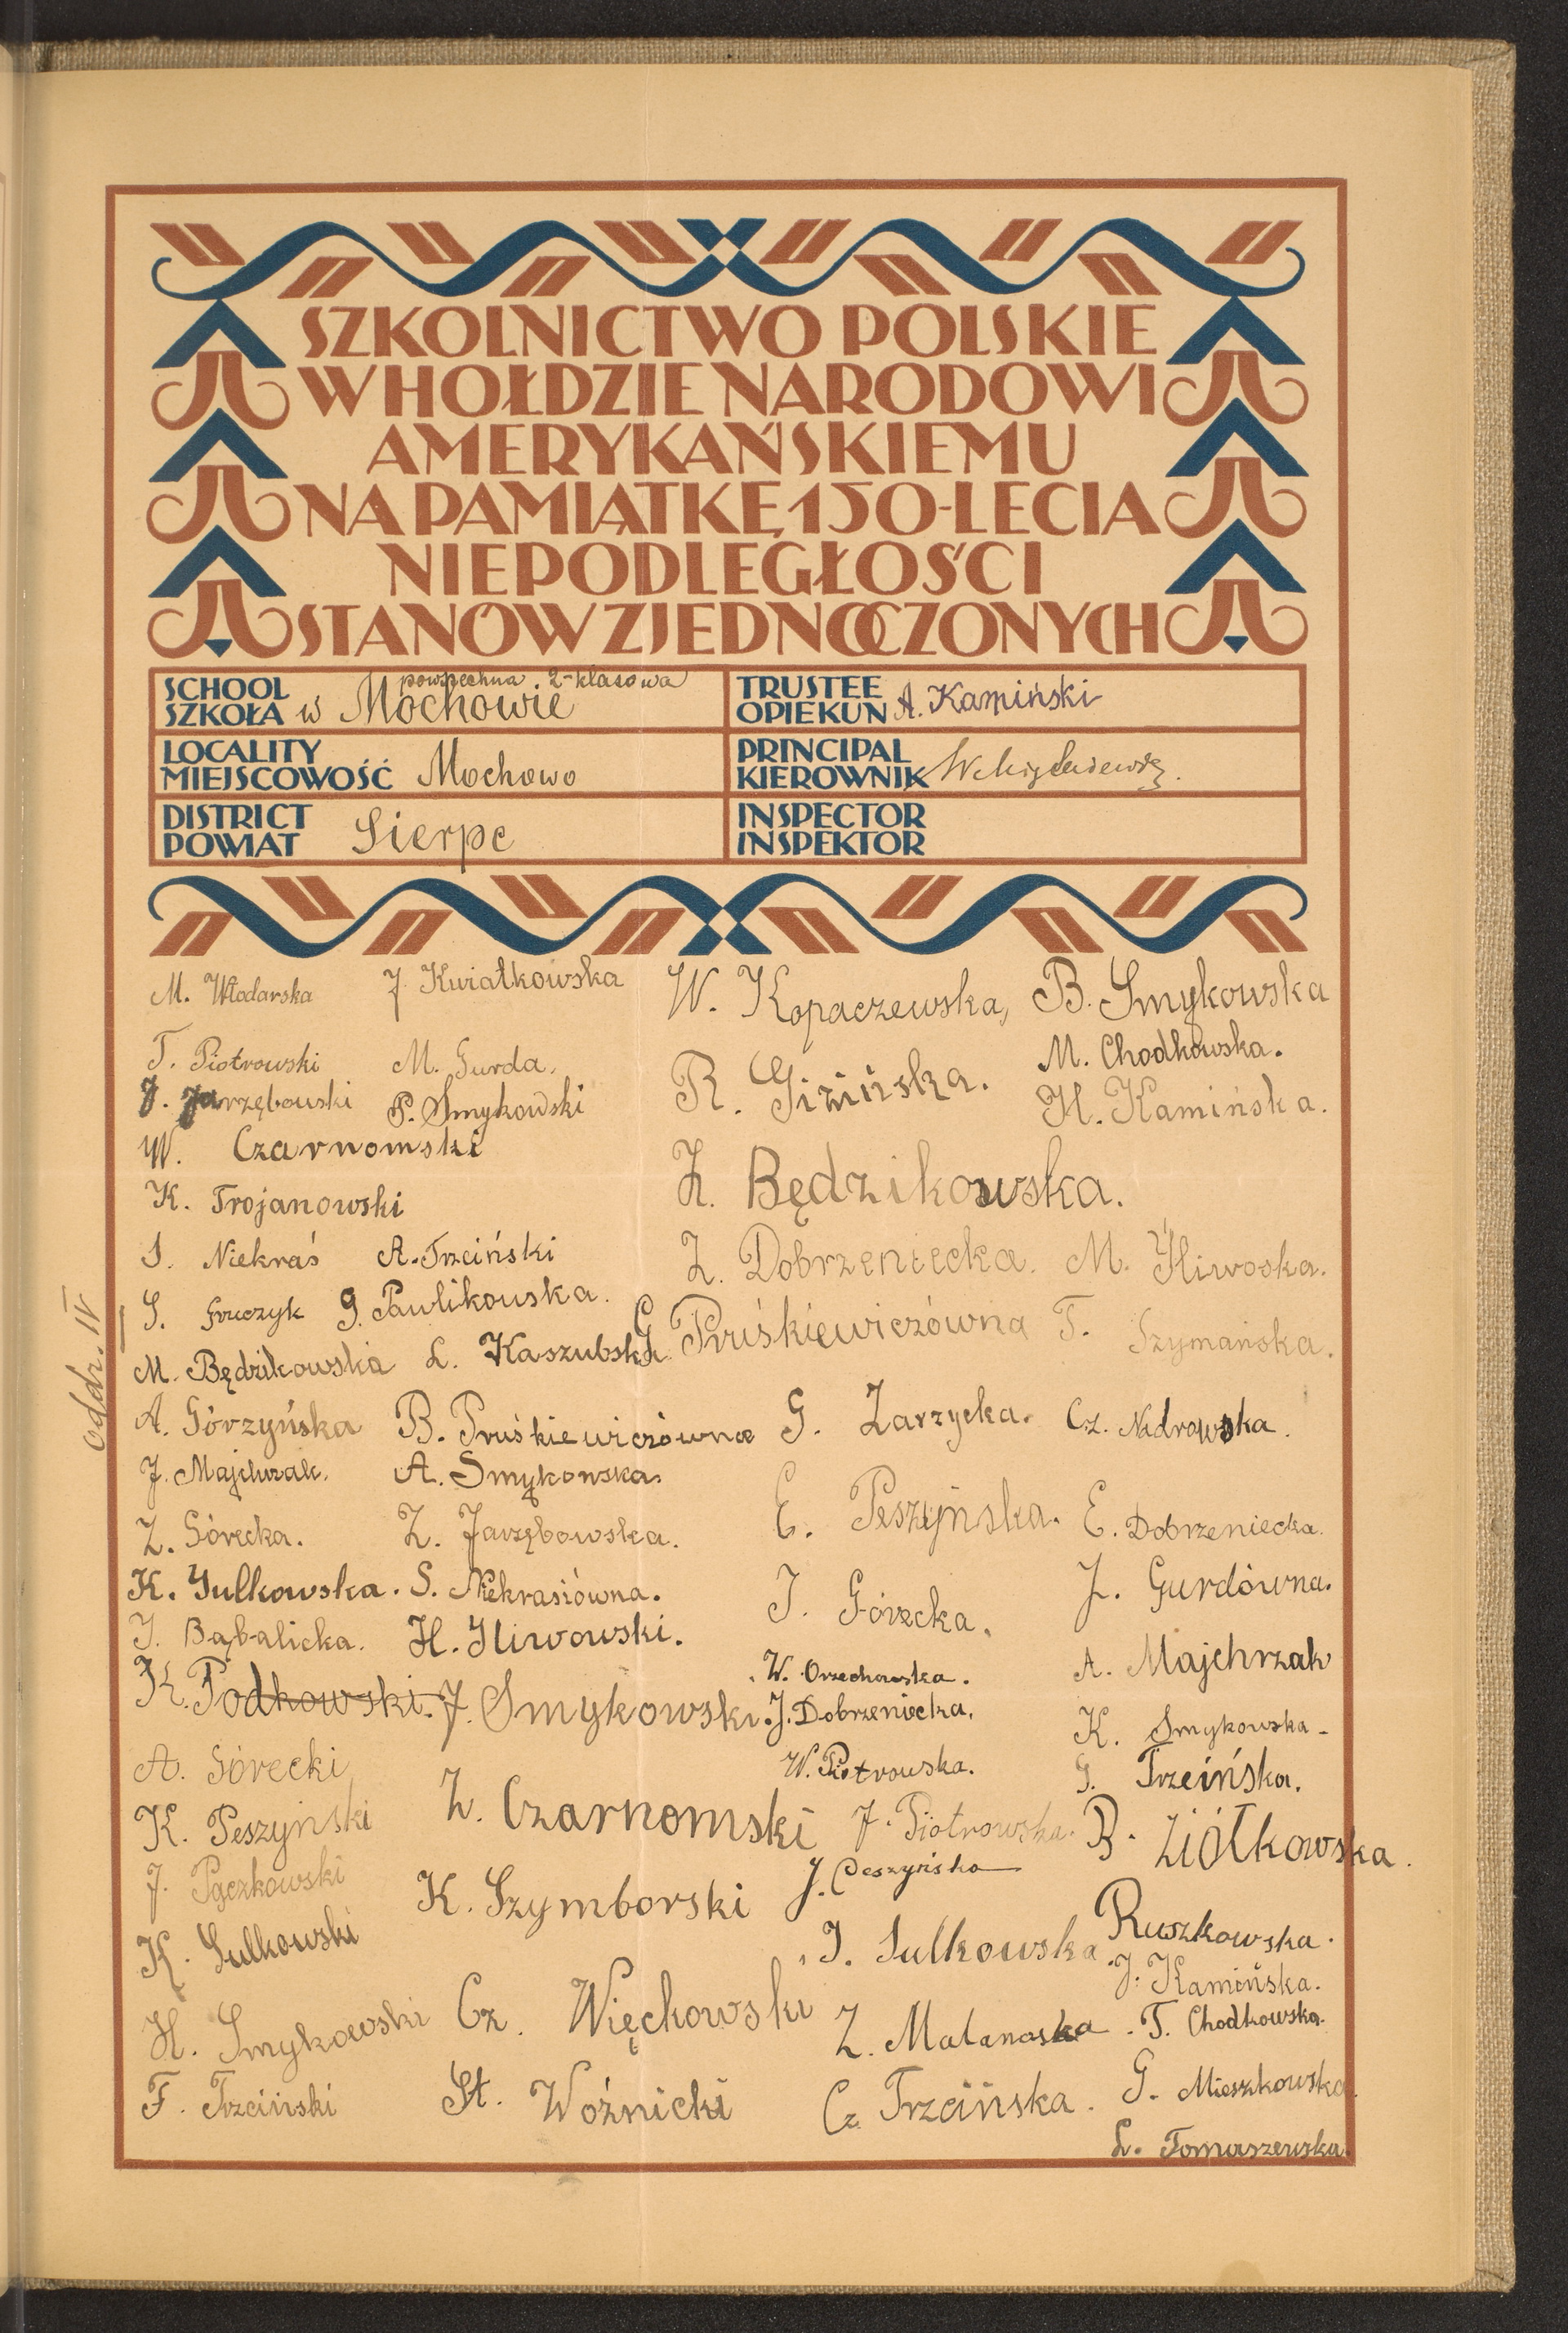 SZKOLNICTWO POLSKIE
W HOŁDZIE NARODOWI
AMERYKAŃSKIEMU
NA PAMIĄTKĘ 150-LECIA
NIEPODLEGŁOŚCI
STANÓW ZJEDNOCZONYCH
SCHOOL
SZKOŁA
powszechna 2-klasowa
w Mochowie
TRUSTEE
OPIEKUN A. Kamiński
LOCALITY
MIEJSCOWOŚĆ Mochowo
PRINCIPAL
KIEROWNIK
DISTRICT
POWIAT Sierpc
INSPECTOR
INSPEKTOR
oddz. IV
M. Włodarska
J. Kwiatkowska
T. Piotrowski
M. Gurda.
J. Jarzębowski
P. Smykowski
W. Czarnomski
K. Trojanowski
S. Niekraś
A. Trzciński
S.
G. Pawlikowska.
M. Będzikowska
L. Kaszubska
A. Górzyńska
B. Pruśkiewiczówna
J. Majchrzak.
A. Smykowska.
Z. Górecka.
Z. Jarzębowska.
K. Sulkowska.
S. Niekrasiówna.
J. Bąbalicka.
H. Iliwowski.
K. Podkowski.
J. Smykowski.
A. Górecki
Z. Czarnomski
K. Peszyński
J. Pączkowski
K. Szymborski
K. Sulkowski
H. Smykowski
Cz. Więckowski
F. Trzciński
St. Woźnicki
W. Kopaczewska,
B. Smykowska
M. Chodkowska.
R. Giżińska.
H. Kamińska.
Z. Będzikowska.
Z. Dobrzeniecka.
M. Iliwoska.
G Pruśkiewiczówna
T. Szymańska.
G. Zarzycka.
Cz. Nadrowska.
E. Peszyńska.
E. Dobrzeniecka.
J. Górecka.
Z. Gurdówna.
W. Orzechowska.
A. Majchrzak
J. Dobrzeniecka.
K. Smykowska
W. Piotrowska.
G. Trzcińska.
J. Piotrowska.
B. Ziółkowska.
J. Peszyńska
Ruszkowska.
J. Sulkowska
J. Kamińska.
Z. Malanoska
T. Chodkowska.
Cz Trzcińska.
G. Mieszkowska.
L. Tomaszewska.